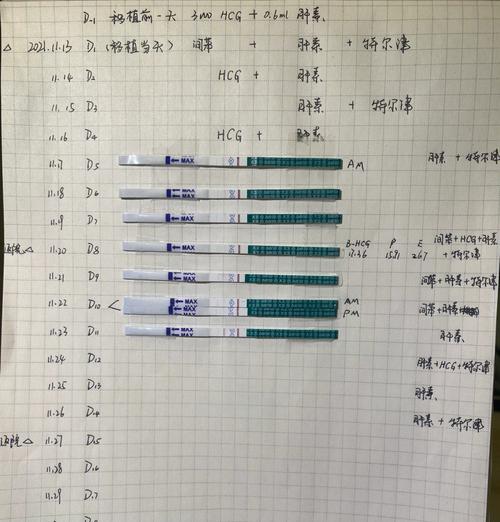 D-1 移植前一天 300 HCG + 0.6ml 肝素
△ 2021.11.13 D1 (移植当天) 间苯 + 肝素 + 特尔津
11.14 D2 HCG + 肝素
11.15 D3 肝素 + 特尔津
11.16 D4 HCG + 肝素
11.17 D5 MAX AM 肝素 + 特尔津
11.18 D6 MAX
11.19 D7 MAX
医院△ 11.20 D8 MAX B-HCG P E 间苯+HCG+肝素
17.36 15.91 267 + 特尔津
11.21 D9 MAX 间苯 + 肝素 + 特尔津
11.22 D10 < MAX AM 间苯 + 肝素 +
MAX PM
11.23 D11 MAX 肝素
11.24 D12 肝素+HCG+特尔津
11.25 D13 肝素
11.26 D14 肝素 + 特尔津
医院△ 11.27 D15
11.28 D16
11.29 D17